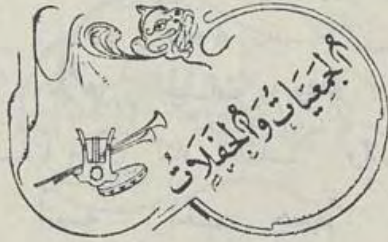 الجمعيَّاتُ وَالحفَلاتُ